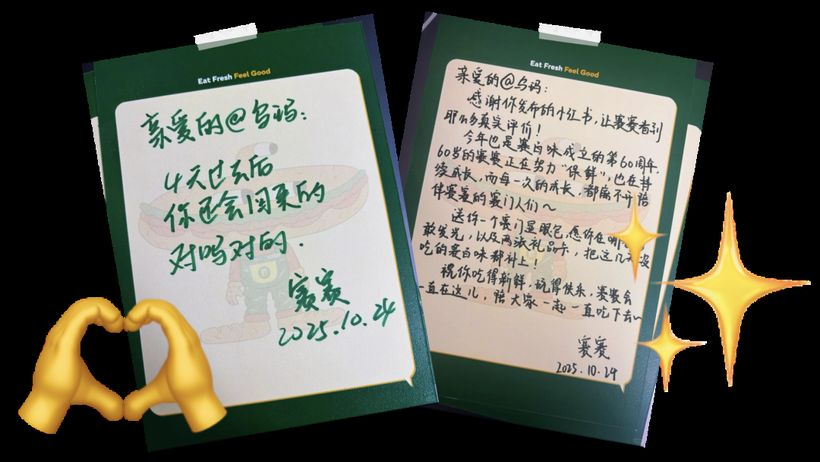 Eat Fresh Feel Good
亲爱的@乌玛:
4天过去后
你还会回来的
对吗对的.
赛赛
2025.10.24
Eat Fresh Feel Good
亲爱的@乌玛:
感谢你发布的小红书,让赛赛看到
那么多真实评价!
今年也是赛百味成立的第60周年,
60岁的赛赛正在努力“保鲜”,也在持
续成长,而每一次的成长,都离不开陪
伴赛赛的赛门人们~
送你一个赛门显眼包,愿你在哪
敢发光,以及两张礼品卡,把这几没
吃的赛百味都补上!
祝你吃得新鲜,玩得快乐,赛赛会
一直在这儿,陪大家一起一直吃下去~
赛赛
2025.10.24